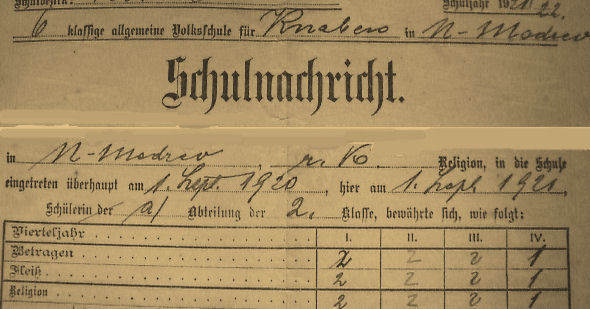 Schuljahr 1921/22.
6 klassige allgemeine Volksschule für Knaben in N-Modrev
Schulnachricht.
in N-Modrev, r. k. Religion, in die Schule
eingetreten überhaupt am 1. Sept. 1920, hier am 1. Sept. 1920,
Schülerin der a) Abteilung der 2. Klasse, bewährte sich, wie folgt:
Vierteljahr I. II. III. IV.
Betragen 2 2 2 1
Fleiß 2 2 2 1
Religion 2 2 2 1